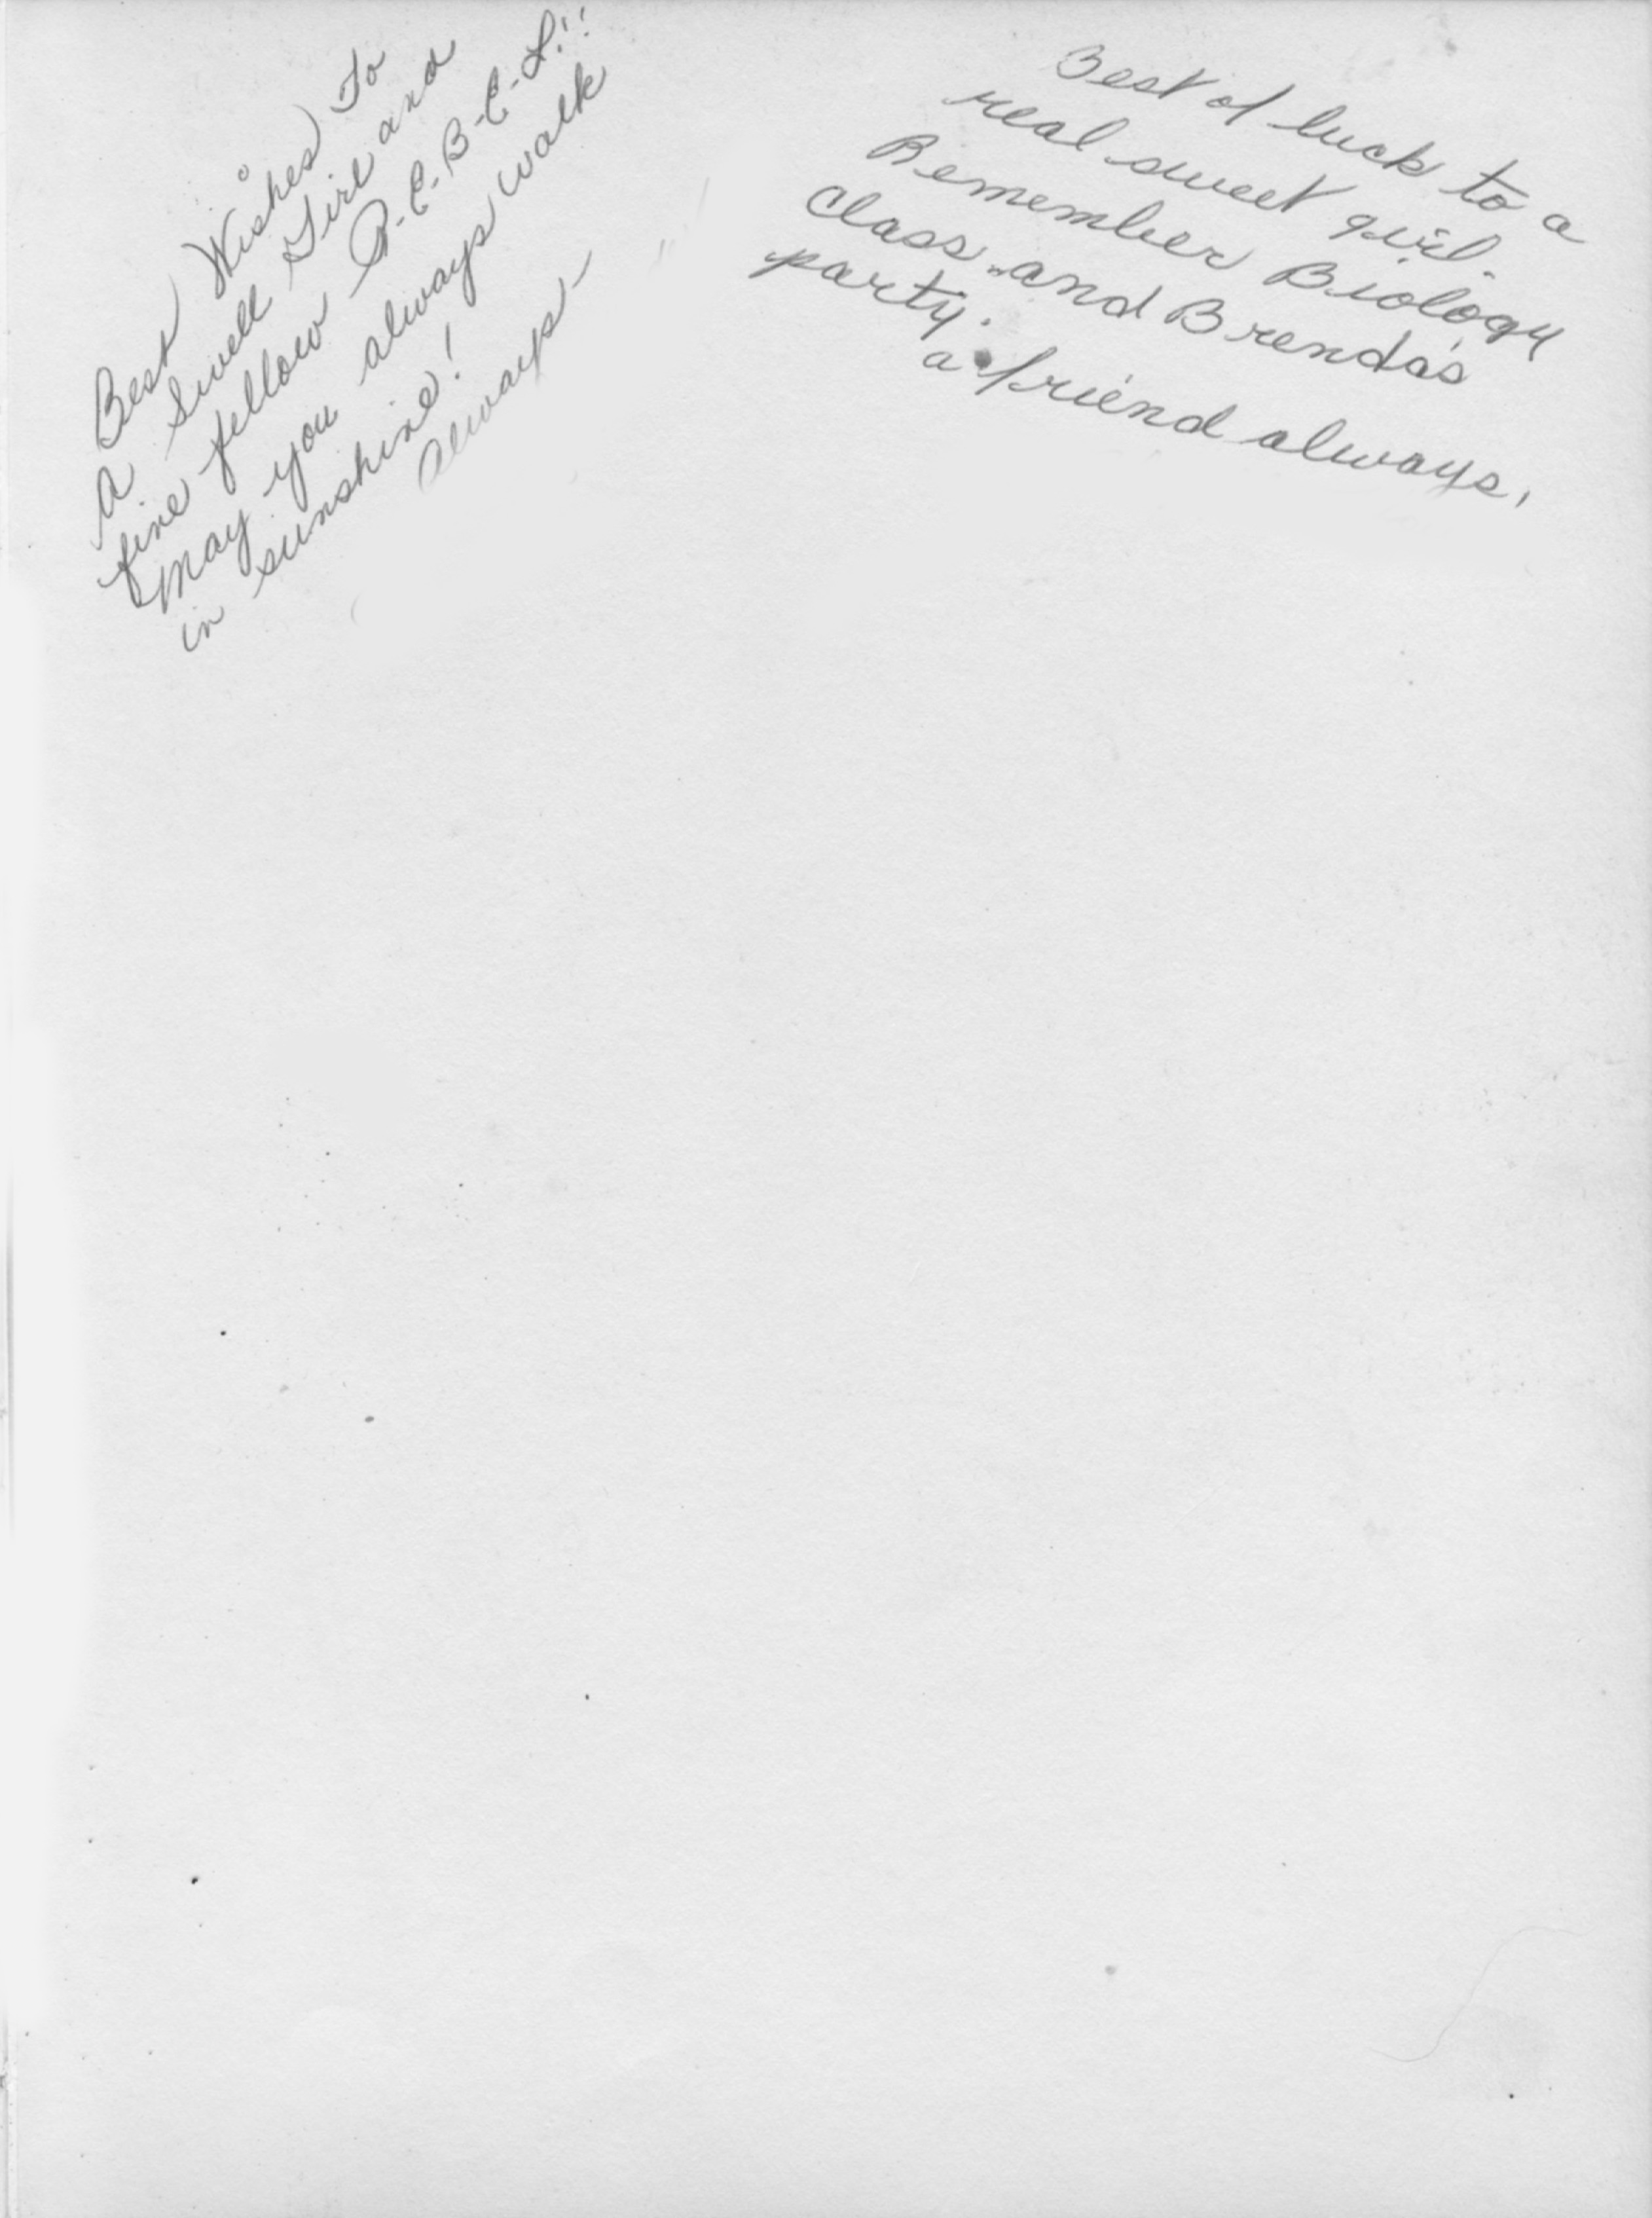 Best Wishes To
A Swell Girl and
fine fellow R-E-B-E-L!!
May you always walk
in sunshine!
Always-
Best of luck to a
real sweet girl.
Remember Biology
class and Brenda's
party.
a friend always,